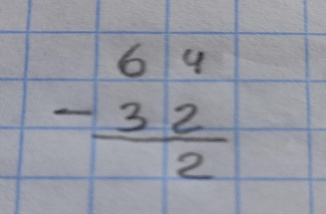 6 4
- 3 2
2